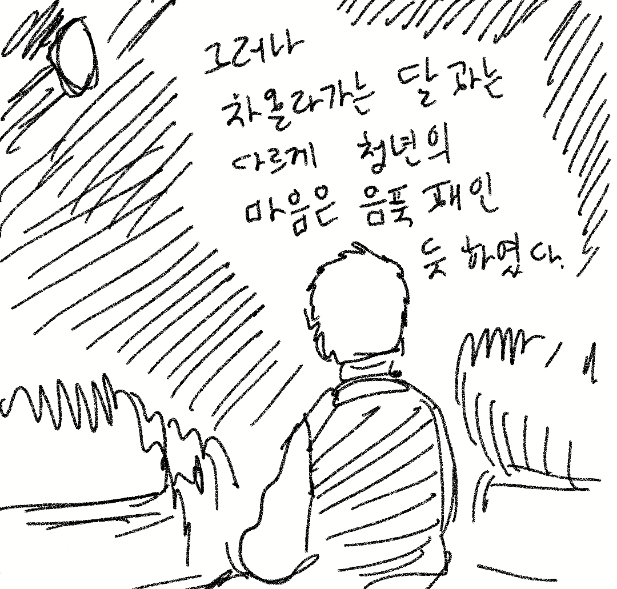 그러나
차올라가는 달과는
다르게 청년의
마음은 음푹 패인
듯 하였다.